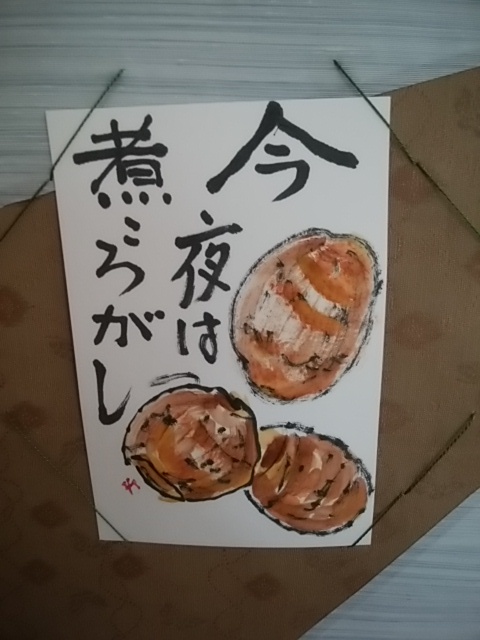 今
夜は
煮ころがし